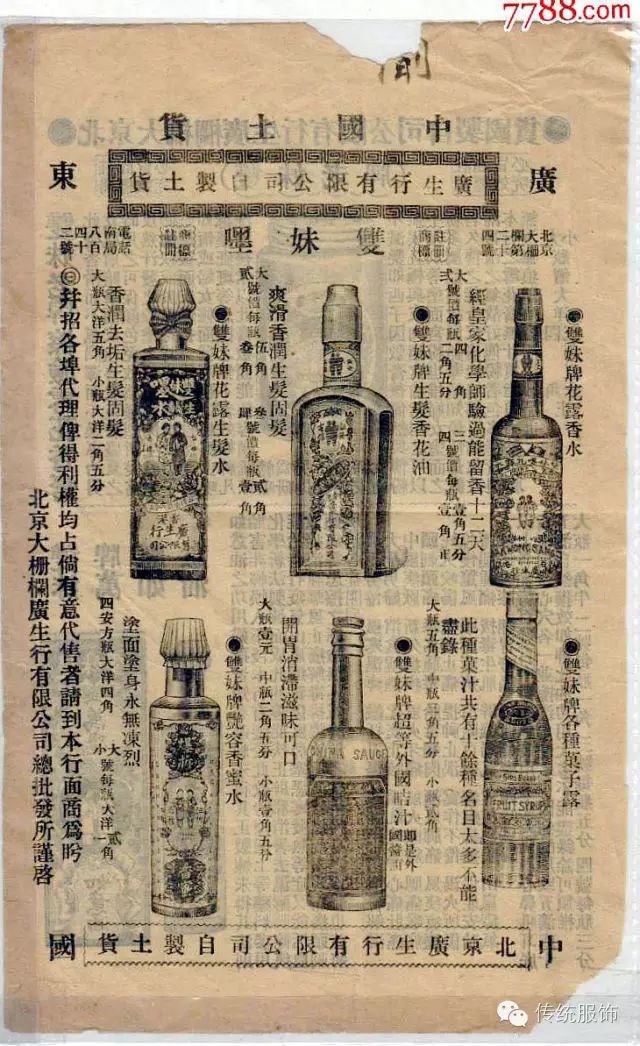 7788.com
中國土貨
廣
東
廣生行有限公司自製土貨
北京大柵欄第二十四號
註冊商標
雙妹嚜
註冊商標
電話南局八百四十二號
●雙妹牌花露香水
經皇家化學師驗過能留香十二天
大號價每瓶四角 三號價每瓶壹角五分
弍號價每瓶二角五分 四號價每瓶壹角正
●雙妹牌生髮香花油
爽滑香潤生髮固髮
大號價每瓶伍角 叁號價每瓶貳角
貳號價每瓶叁角 肆號價每瓶壹角
●雙妹牌花露生髮水
香潤去垢生髮固髮
大瓶大洋五角 小瓶大洋二角五分
KWONG SANG
●雙妹牌各種菓子露
此種菓汁共有十餘種名目太多不能盡錄
大瓶五角 中瓶三角五分 小瓶貳角
●雙妹牌超等外國喼汁
開胃消滯滋味可口
大瓶壹元 中瓶二角五分 小瓶壹角五分
●雙妹牌艷容香蜜水
塗面塗身永無凍烈
四安方瓶大洋四角
FRUIT SYRUP
SAUCE
幷招各埠代理俾得利權均占倘有意代售者請到本行面商爲盼
北京大柵欄廣生行有限公司總批發所謹啓
中
國
北京廣生行有限公司自製土貨
传统服饰